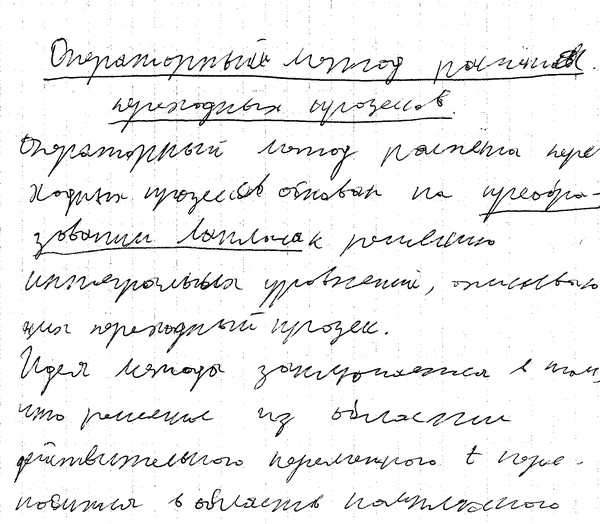 Операторный метод расчётов
переходных процессов.
Операторный метод расчёта пере
ходных процессов основан на преобра-
зовании Лапласа к решению
интегральных уровнений, описываю
щих переходный процес.
Идея метода заключается в том,
что решение из области
действительного переменного t пере-
носится в область комплексного